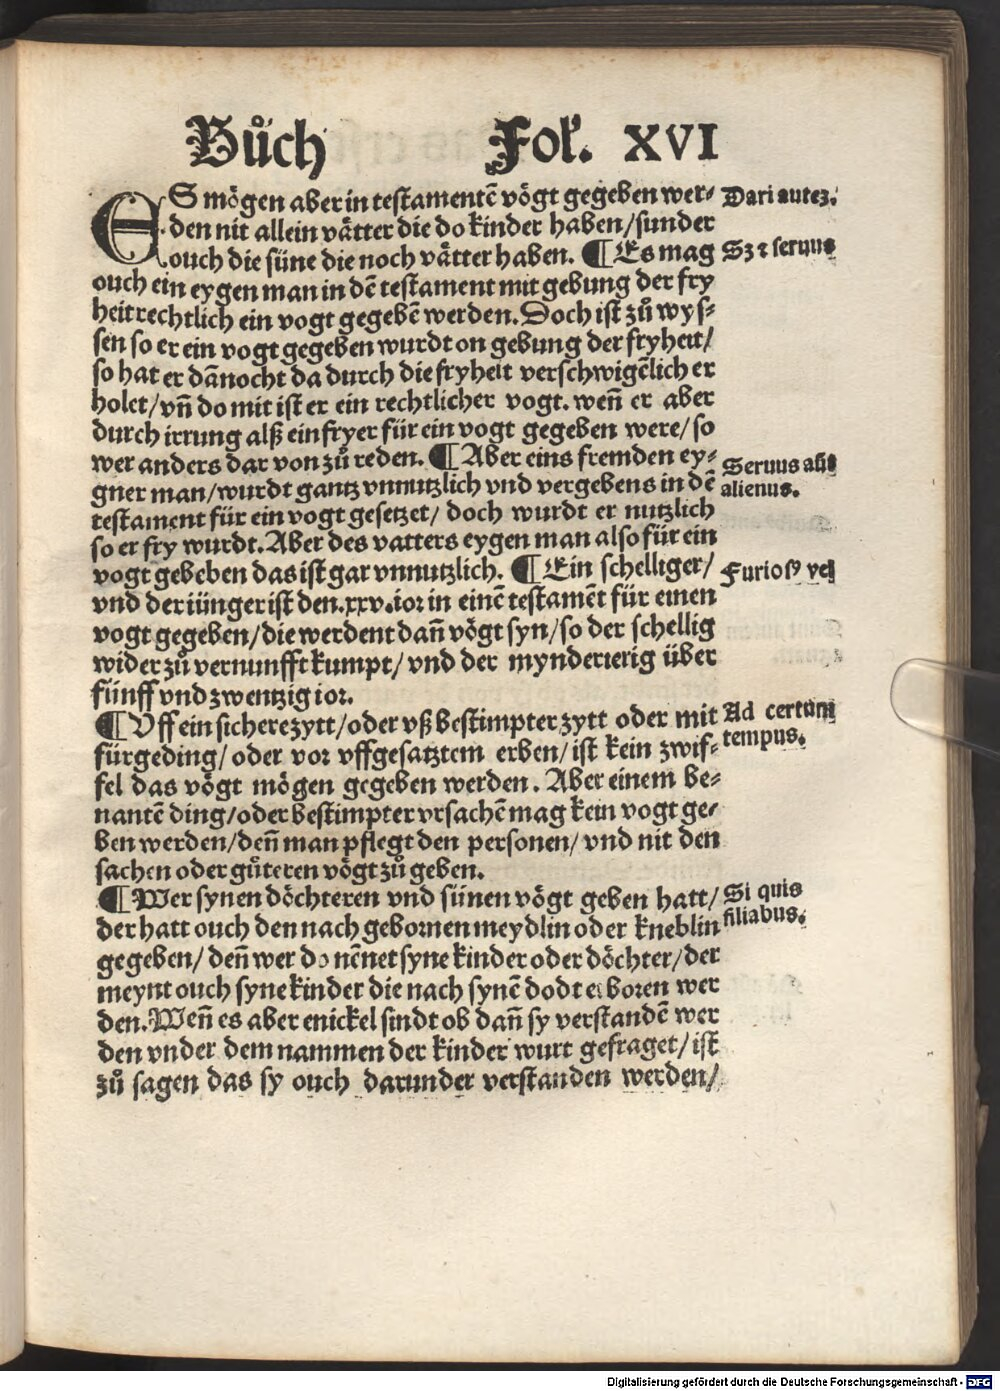 Bůch Fol. XVI
ES mögen aber in testamentē vögt gegeben wer⸗
den nit allein vätter die do kinder haben/sunder
ouch die süne die noch vätter haben. ¶ Es mag
ouch ein eygen man in dē testament mit gebung der fry
heit rechtlich ein vogt gegebē werden. Doch ist zů wys⸗
sen so er ein vogt gegeben wurdt on gebung der fryheit/
so hat er dānocht da durch die fryheit verschwigēlich er
holet/vn̄ do mit ist er ein rechtlicher vogt. wen̄ er aber
durch irrung alß ein fryer für ein vogt gegeben were/so
wer anders dar von zů reden. ¶ Aber eins fremden ey⸗
gner man/wurdt gantz vnnutzlich vnd vergebens in dē
testament für ein vogt gesetzet/ doch wurdt er nutzlich
so er fry wurdt. Aber des vatters eygen man also für ein
vogt gebeben das ist gar vnnutzlich. ¶ Ein schelliger/
vnd der iünger ist den .xxv. ior in einē testamēt für einen
vogt gegeben/die werdent dan̄ vögt syn/so der schellig
wider zů vernunfft kumpt/ vnd der mynderierig über
fünff vnd zwentzig ior.
¶ Uff ein sichere zytt/oder vß bestimpter zytt oder mit
fürgeding/ oder vor vffgesatztem erben/ ist kein zwif⸗
fel das vögt mögen gegeben werden. Aber einem be⸗
nantē ding/oder bestimpter vrsachē mag kein vogt ge⸗
ben werden/den̄ man pflegt den personen/ vnd nit den
sachen oder gůteren vögt zů geben.
¶ Wer synen döchteren vnd sünen vögt geben hatt/
der hatt ouch den nach gebornen meydlin oder kneblin
gegeben/ den̄ wer do nēnet syne kinder oder döchter/der
meynt ouch syne kinder die nach synē dodt erboren wer
den. Wen̄ es aber enickel sindt ob dan̄ sy verstandē wer
den vnder dem nammen der kinder wurt gefraget/ ist
zů sagen das sy ouch darunder verstanden werden/
Dari autez.
Sz ⁊ seruus
Seruus aūt
alienus.
Furiosꝰ vel
Ad certum
tempus.
Si quis
filiabus.
Digitalisierung gefördert durch die Deutsche Forschungsgemeinschaft - DFG